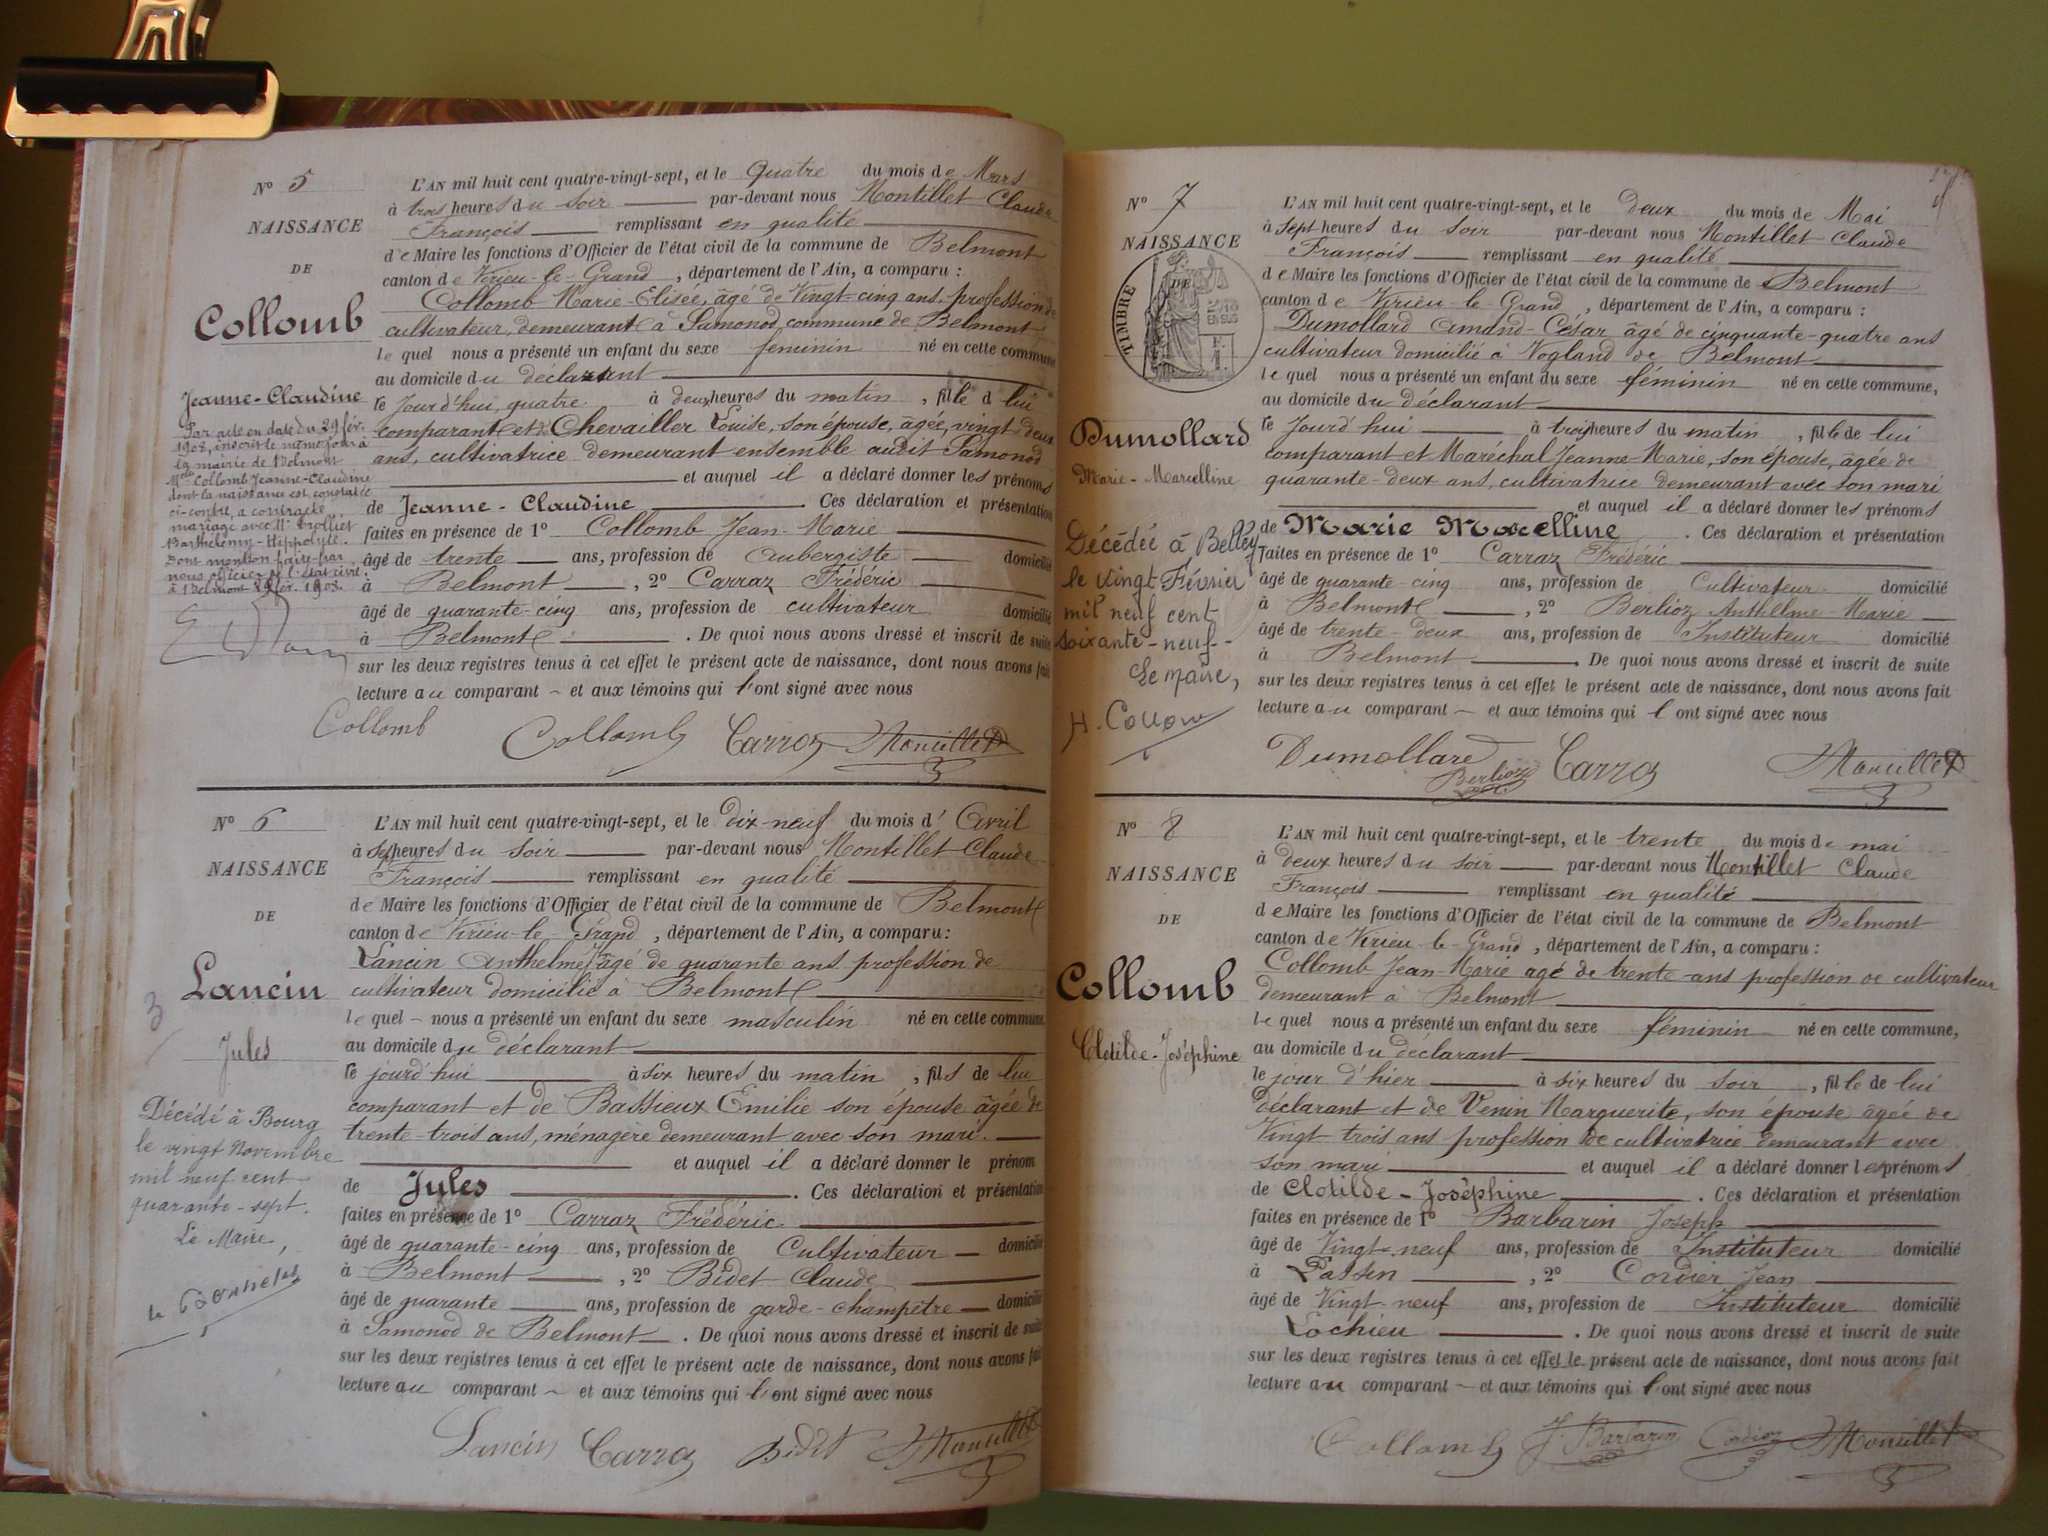 N° 5
NAISSANCE
DE
Collomb
Jeanne-Claudine
Par acte en date du 29 fév.
1908, inscrit le même jour à
la mairie de Belmont
Mlle Collomb Jeanne-Claudine
dont la naissance est constatée
ci-contre, a contracté
mariage avec Mr Trolliet
Barthélemy-Hippolyte.
Dont mention faite par
nous officier de l'état civil.
à Belmont 29 fév. 1908.
L'AN mil huit cent quatre-vingt-sept, et le quatre du mois de Mars
à trois heures du soir par-devant nous Montillet Claude
François remplissant en qualité
de Maire les fonctions d'Officier de l'état civil de la commune de Belmont
canton de Virieu-le-Grand, département de l'Ain, a comparu :
Collomb Marie-Elisée, âgé de Vingt-cinq ans, profession de
cultivateur, demeurant à Samonod, commune de Belmont
lequel nous a présenté un enfant du sexe féminin né en cette commune
au domicile du déclarant
le jourd'hui, quatre à deux heures du matin, fille d lui
comparant et d Chevailler Louise, son épouse, âgée, vingt deux
ans, cultivatrice demeurant ensemble audit Samonod
et auquel il a déclaré donner les prénoms
de Jeanne-Claudine. Ces déclaration et présentation
faites en présence de 1° Collomb Jean-Marie
âgé de trente ans, profession de aubergiste domicilié
à Belmont, 2° Carraz Frédéric
âgé de quarante-cinq ans, profession de cultivateur domicilié
à Belmont. De quoi nous avons dressé et inscrit de suite
sur les deux registres tenus à cet effet le présent acte de naissance, dont nous avons fait
lecture au comparant et aux témoins qui l'ont signé avec nous
Collomb Collomb Carraz Montillet
N° 6
NAISSANCE
DE
Lancin
3
Jules
Décédé à Bourg
le vingt Novembre
mil neuf cent
quarante-sept.
Le Maire,
L'AN mil huit cent quatre-vingt-sept, et le dix-neuf du mois d'Avril
à sept heures du soir par-devant nous Montillet Claude
François remplissant en qualité
de Maire les fonctions d'Officier de l'état civil de la commune de Belmont
canton de Virieu-le-Grand, département de l'Ain, a comparu :
Lancin Anthelme, âgé de quarante ans, profession de
cultivateur domicilié à Belmont
lequel nous a présenté un enfant du sexe masculin né en cette commune
au domicile du déclarant
le jourd'hui à six heures du matin, fils de lui
comparant et de Bassieux Emilie son épouse âgée de
trente-trois ans, ménagère demeurant avec son mari.
et auquel il a déclaré donner le prénom
de Jules. Ces déclaration et présentation
faites en présence de 1° Carraz Frédéric
âgé de quarante-cinq ans, profession de Cultivateur domicilié
à Belmont, 2° Bidet Claude
âgé de quarante ans, profession de garde-champêtre domicilié
à Samonod de Belmont. De quoi nous avons dressé et inscrit de suite
sur les deux registres tenus à cet effet le présent acte de naissance, dont nous avons fait
lecture au comparant et aux témoins qui l'ont signé avec nous
Lancin Carraz Bidet Montillet
N° 7
NAISSANCE
DE
TIMBRE
2/10
EN SUS
Dumollard
Marie-Marcelline
Décédée à Belley
le vingt Février
mil neuf cent
soixante-neuf-
Le Maire,
L'AN mil huit cent quatre-vingt-sept, et le deux du mois de Mai
à sept heures du soir par-devant nous Montillet Claude
François remplissant en qualité
de Maire les fonctions d'Officier de l'état civil de la commune de Belmont
canton de Virieu-le-Grand, département de l'Ain, a comparu :
Dumollard Amand-César âgé de cinquante-quatre ans
cultivateur domicilié à Vogland de Belmont
lequel nous a présenté un enfant du sexe féminin né en cette commune,
au domicile du déclarant
le Jourd'hui à trois heures du matin, fille de lui
comparant et Maréchal Jeanne-Marie, son épouse, âgée de
quarante-deux ans, cultivatrice demeurant avec son mari
et auquel il a déclaré donner les prénoms
de Marie Marcelline. Ces déclaration et présentation
faites en présence de 1° Carraz Frédéric
âgé de quarante-cinq ans, profession de Cultivateur domicilié
à Belmont, 2° Berlioz Anthelme-Marie
âgé de trente-deux ans, profession de Instituteur domicilié
à Belmont. De quoi nous avons dressé et inscrit de suite
sur les deux registres tenus à cet effet le présent acte de naissance, dont nous avons fait
lecture au comparant et aux témoins qui l'ont signé avec nous
Dumollard Berlioz Carraz Montillet
N° 8
NAISSANCE
DE
Collomb
Clotilde-Joséphine
L'AN mil huit cent quatre-vingt-sept, et le trente du mois de mai
à deux heures du soir par-devant nous Montillet Claude
François remplissant en qualité
de Maire les fonctions d'Officier de l'état civil de la commune de Belmont
canton de Virieu-le-Grand, département de l'Ain, a comparu :
Collomb Jean-Marie agé de trente ans profession de cultivateur
demeurant à Belmont
lequel nous a présenté un enfant du sexe féminin né en cette commune,
au domicile du déclarant
le jour d'hier à six heures du soir, fille de lui
déclarant et de Venin Marguerite, son épouse âgée de
Vingt-trois ans profession de cultivatrice demeurant avec
son mari et auquel il a déclaré donner les prénoms
de Clotilde-Joséphine. Ces déclaration et présentation
faites en présence de 1° Barbarin Joseph
âgé de Vingt-neuf ans, profession de Instituteur domicilié
à Passin, 2° Cordier Jean
âgé de Vingt-neuf ans, profession de Instituteur domicilié
Lochieu. De quoi nous avons dressé et inscrit de suite
sur les deux registres tenus à cet effet le présent acte de naissance, dont nous avons fait
lecture au comparant et aux témoins qui l'ont signé avec nous
Collomb J. Barbarin Cordier Montillet